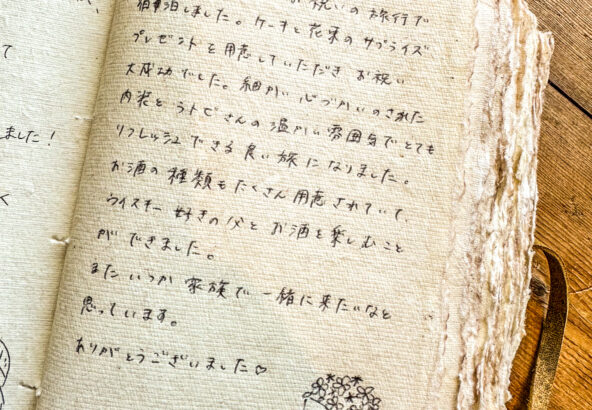 て
ました!
く
お祝いの旅行で
宿泊しました。ケーキと花束のサプライズ
プレゼントを用意していただき お祝い
大成功でした。細かい心づかいのされた
内装と ラトビさんの温かい雰囲気でとても
リフレッシュできる良い旅になりました。
お酒の種類もたくさん用意されていて、
ウイスキー好きの父とお酒を楽しむこと
ができました。
またいつか家族で一緒に来たいなと
思っています。
ありがとうございました♡